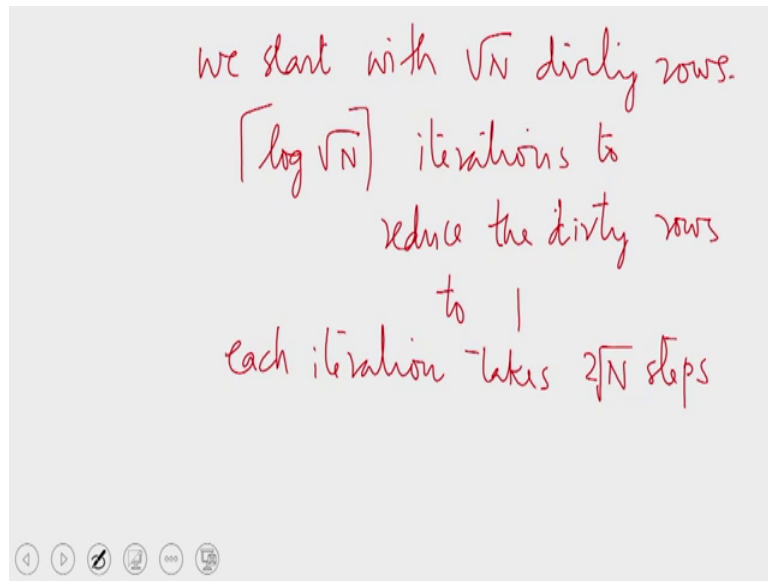 we start with √N dirty rows.
⌈log √N⌉ iterations to
reduce the dirty rows
to 1
each iteration takes 2√N steps